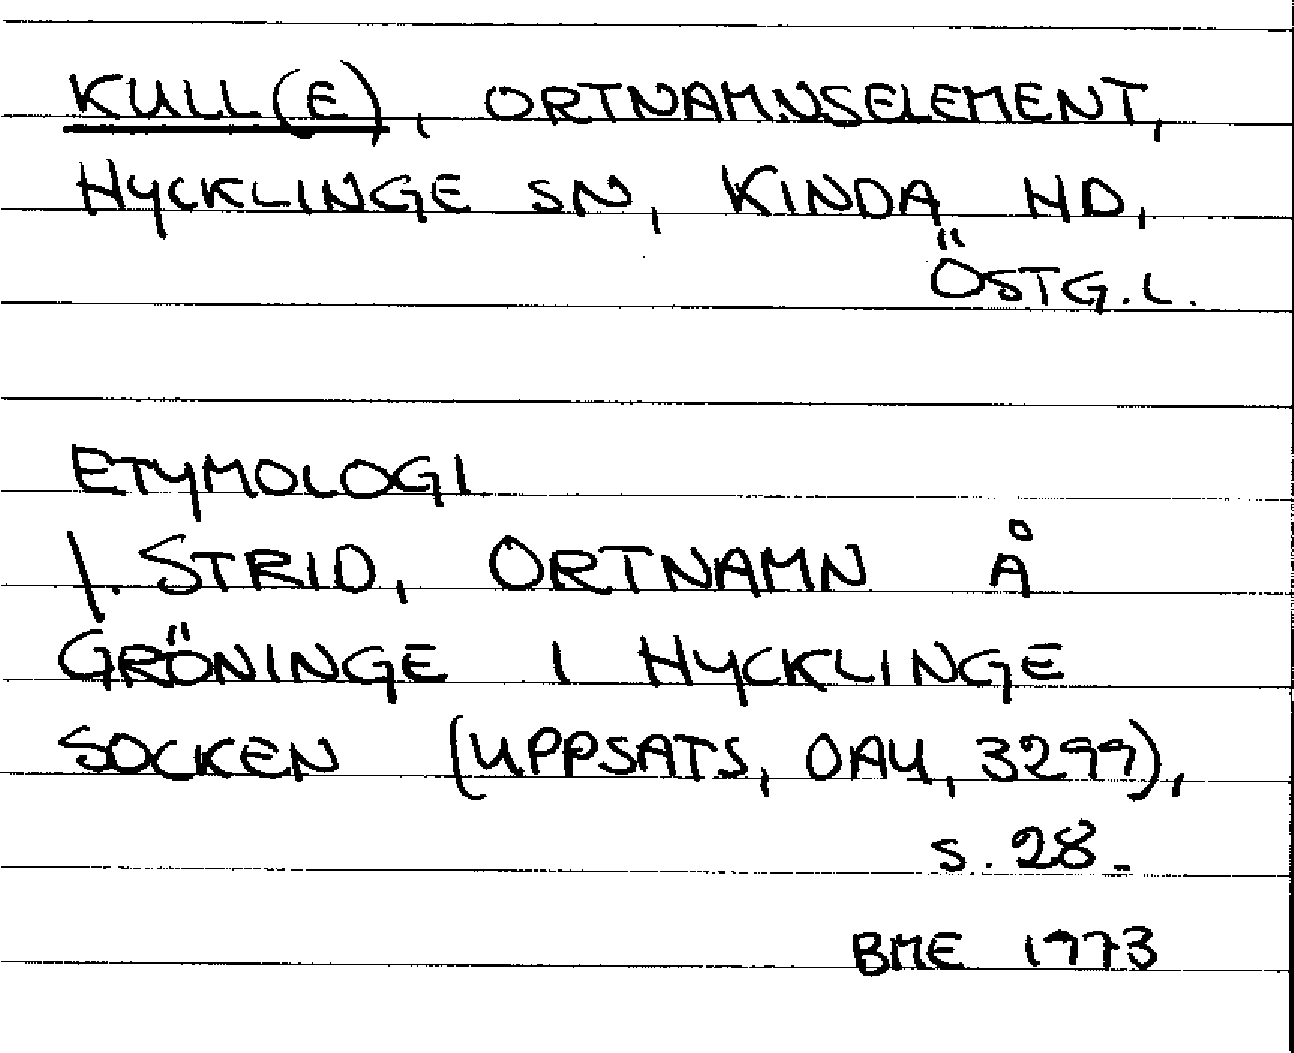 KULL(E), ORTNAMNSELEMENT,
HYCKLINGE SN, KINDA HD,
ÖSTG.L.
ETYMOLOGI
J. STRID, ORTNAMN Å
GRÖNINGE I HYCKLINGE
SOCKEN (UPPSATS, OAU, 3299),
s. 28.
BME 1973